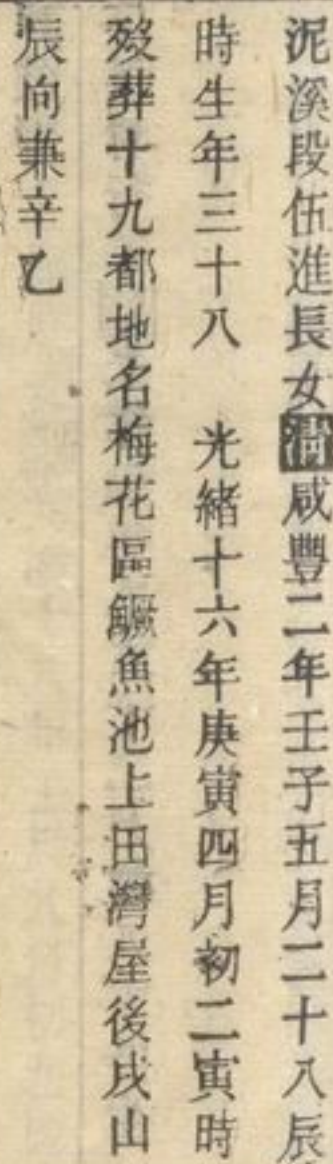 泥溪段伍進長女淸咸豐二年壬子五月二十八辰
時生年三十八　光緒十六年庚寅四月初二寅時
歿葬十九都地名梅花區鱖魚池上田灣屋後戌山
辰向兼辛乙